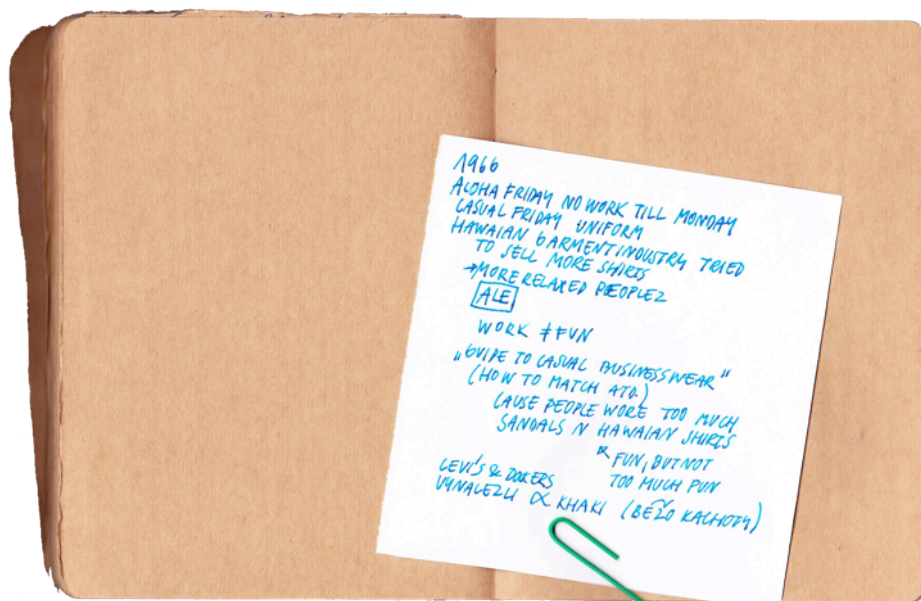 1966
ALOHA FRIDAY NO WORK TILL MONDAY
CASUAL FRIDAY UNIFORM
HAWAIAN GARMENT INDUSTRY TRIED
TO SELL MORE SHIRTS
→MORE RELAXED PEOPLEZ
ALE
WORK ≠ FUN
„GUIDE TO CASUAL BUSINESSWEAR"
(HOW TO MATCH ATD.)
CAUSE PEOPLE WORE TOO MUCH
SANDALS N HAWAIAN SHIRTS
FUN, BUT NOT
TOO MUCH FUN
LEVI'S & DOKERS
VYNALEZLI KHAKI (BÉŽO KALHOTY)